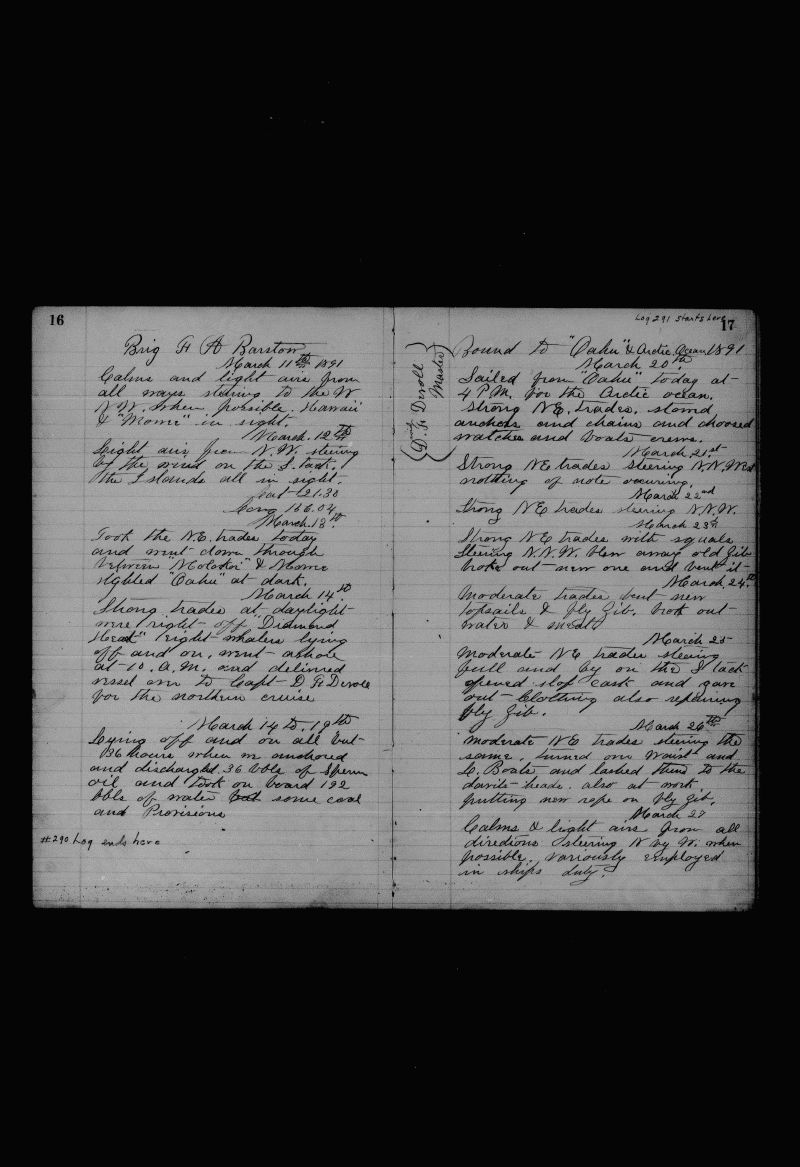 16
Brig F A Barstow
March 11th 1891
Calms and light airs from
all ways steering to the W
N.W. when possible. Hawaii
& "Mowi" in sight.
March. 12th
Light airs from N.W. steering
by the wind on the S. tack.
the Islands all in sight.
Lat 21.30
Long 156.04
March. 13th
Took the N.E. trades today
and went down through
between "Molokoi" & Mowi
sighted "Oahu" at dark.
March 14th
Strong trades at daylight
were right off "Diamond
Head" eight whalers lying
off and on. went ashore
at 10. A.M. and delivered
vessel over to Capt D F Devoll
for the northern cruise
March 14 to. 19th
Lying off and on all but
36 hours when we anchored
and discharged 36 bbls of Sperm
oil and took on board 192
bbls of water some coal
and Provisions
#290 Log ends here
Log 291 starts here
17
D. F Devoll
Master
Bound to "Oahu" & Arctic Ocean 1891
March 20th
Sailed from "Oahu" today at
4 P.M. for the Arctic ocean.
Strong N.E. trades. stowd
anchors and chains and choosed
watches and boats crews.
March 21st
Strong NE trades steering N.N.West
nothing of note occuring.
March 22nd
Strong NE trades steering N.N.W.
March 23rd
Strong NE trades with squals
Steering N.N.W. blew away old jib
broke out new one and bent it
March 24th
Moderate trades bent new
topsails & fly jib. brok out
water & meat
March 25
Moderate NE trades steering
full and by on the S tack
opened slop cask and gave
out Clothing also repairing
fly jib.
March 26th
Moderate NE trades steering the
same, turned over Waist and
L. Boats and lashed them to the
davit heads. also at work.
putting new rope on fly jib.
March 27
Calms & light airs from all
directions steering N by W. when
possible. variously employed
in ships duty.